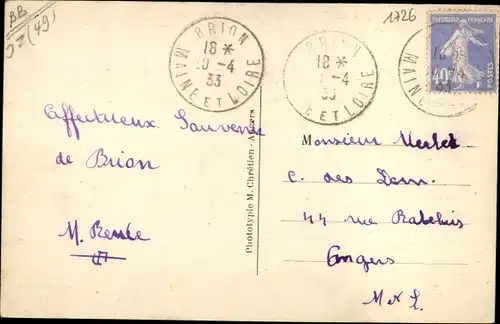 BB
(49)
1726
BRION
18 *
10-4
33
MAINE ET LOIRE
BRION
18 *
-4
33
MAINE ET LOIRE
REPUBLIQUE FRANÇAISE
18
40
POSTES
MAINE
Affectueux Souvenir
de Brion
M. Renée
Phototypie M. Chrétien - Angers
Monsieur
C. des Dom.
44 rue Rabelais
Angers
M & L.